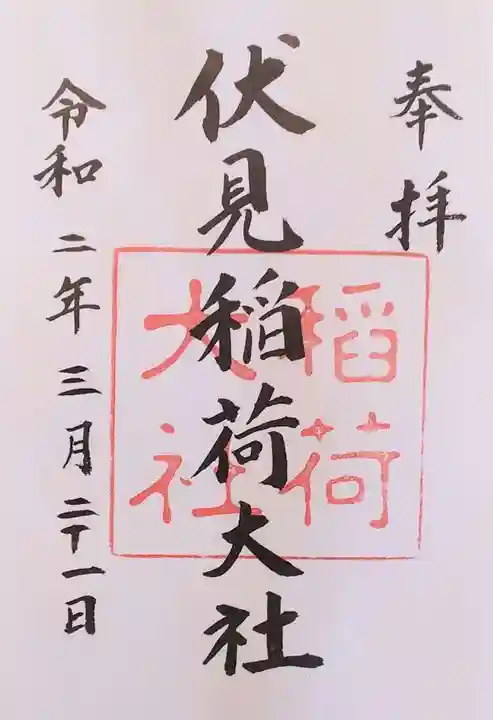 奉拝
伏見稲荷大社
稲荷
大社
令和二年三月二十一日